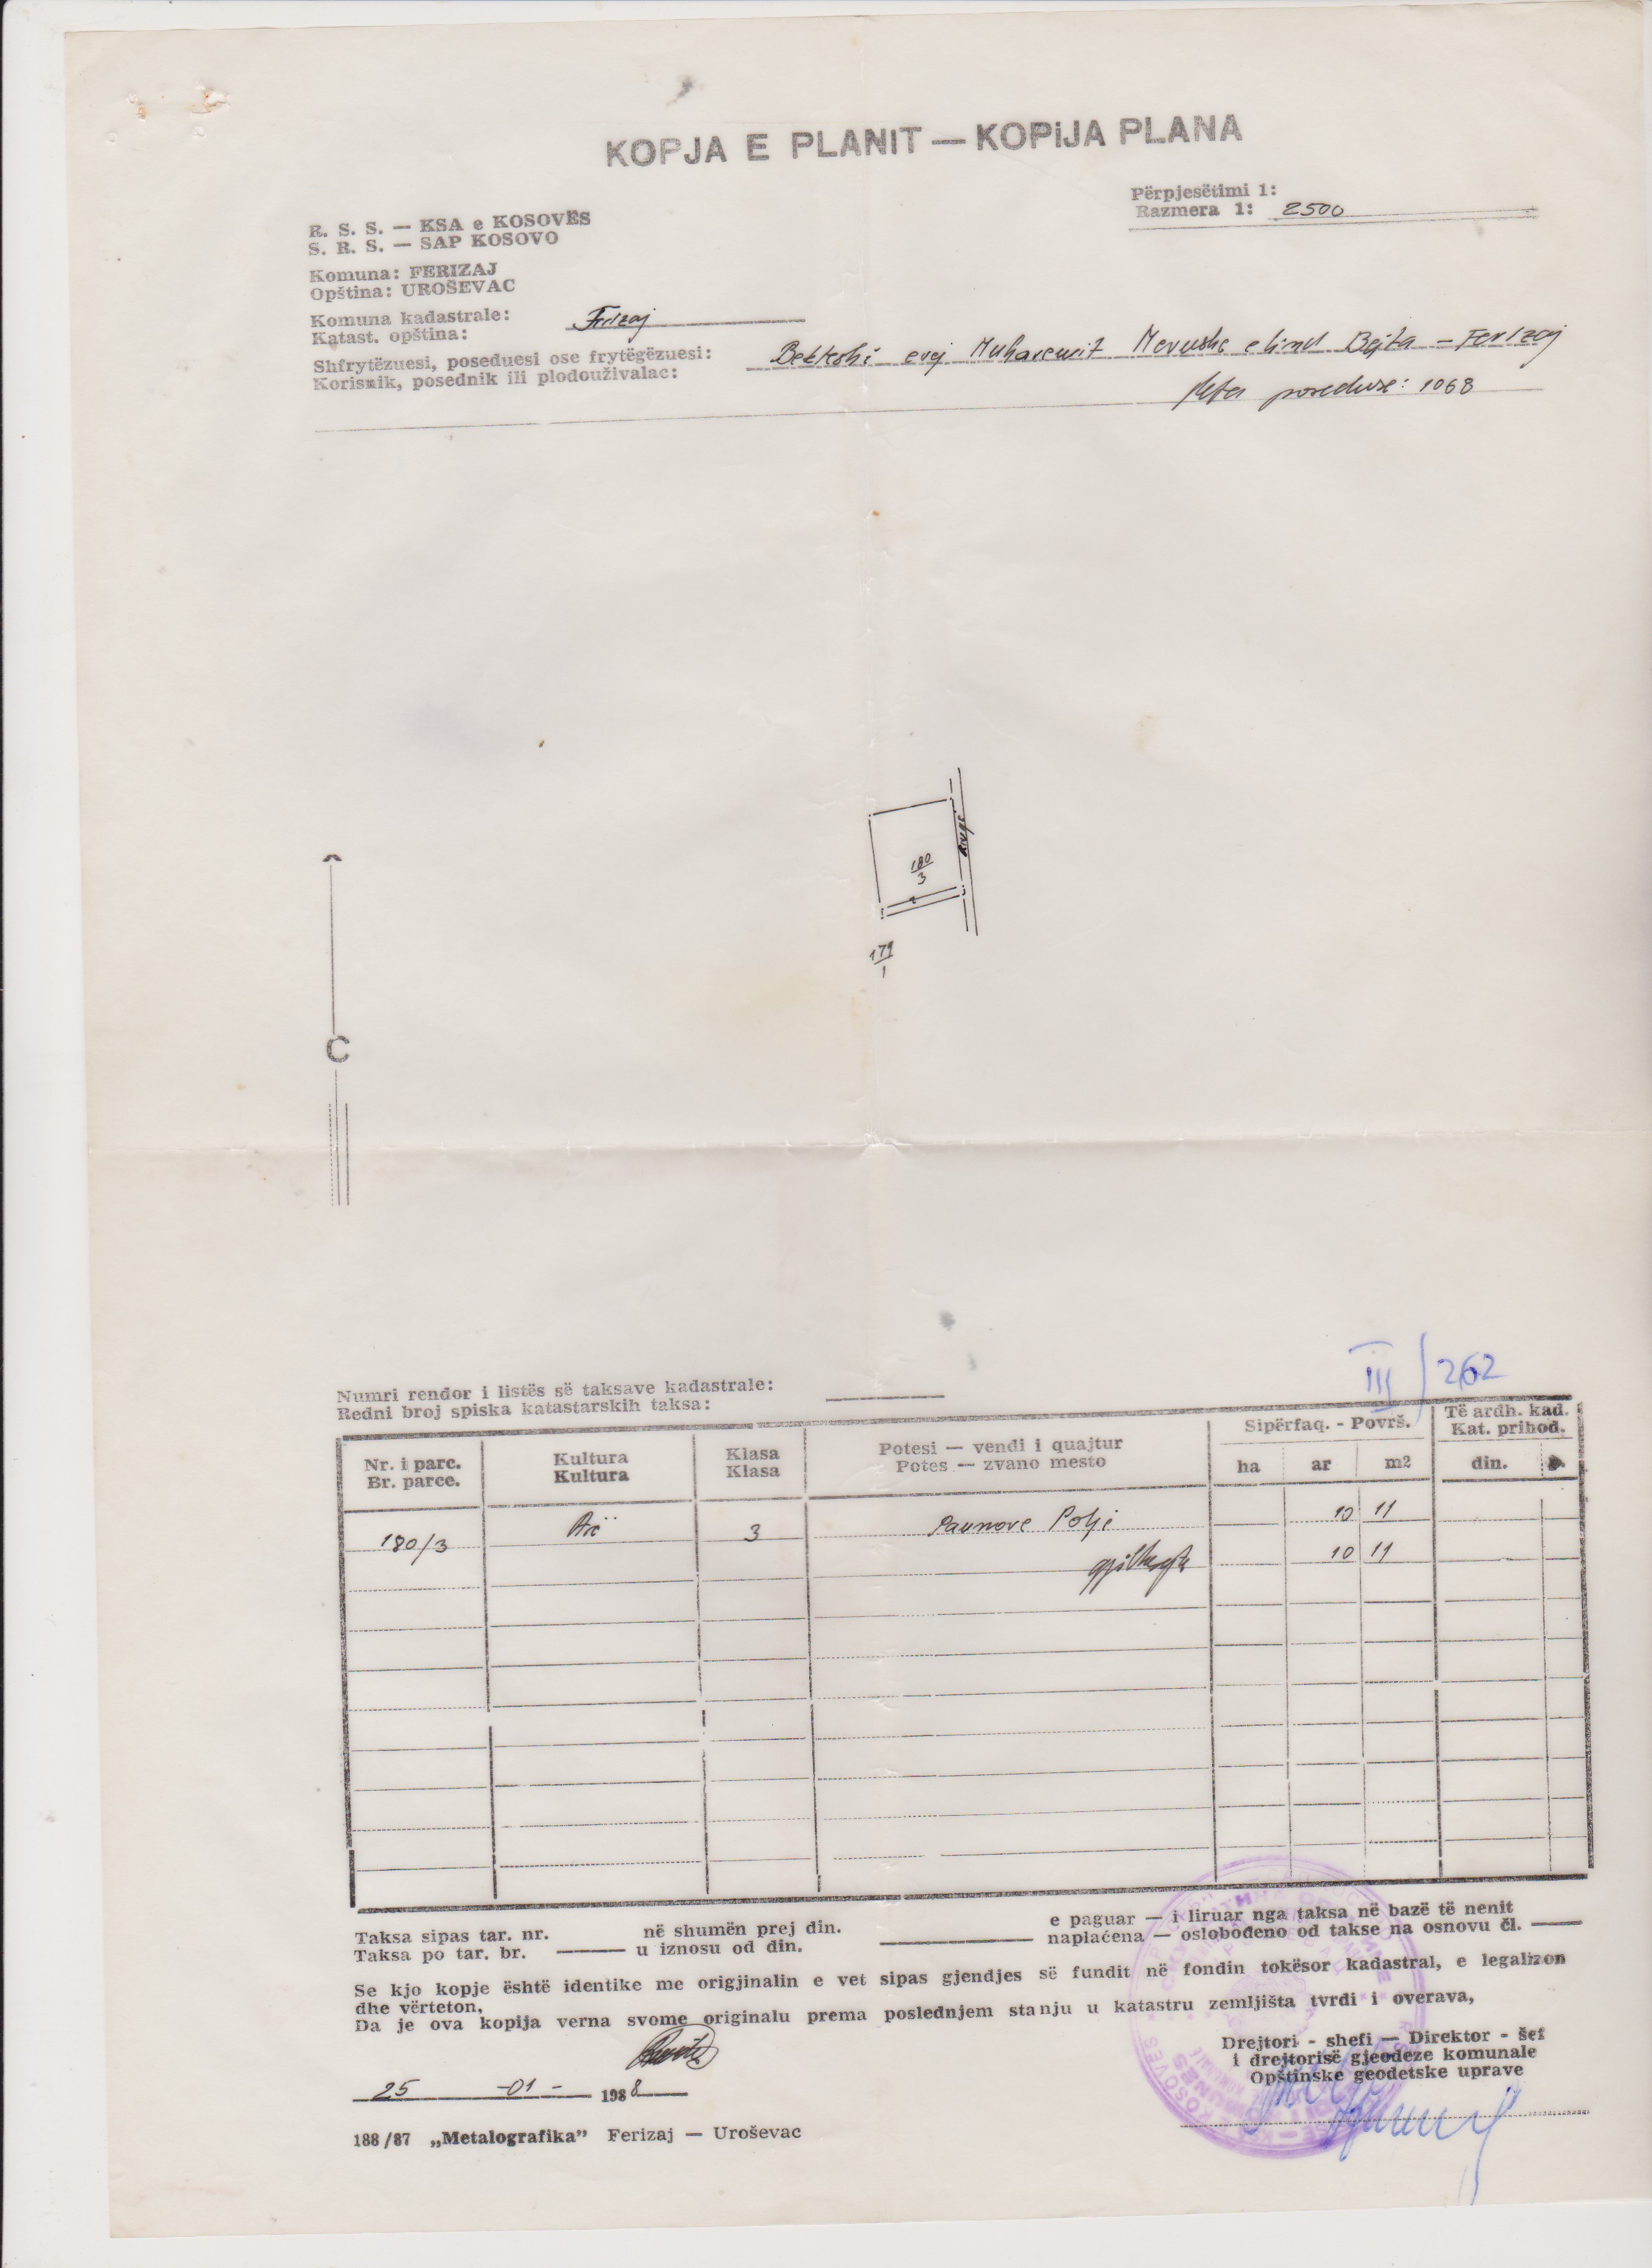 KOPJA E PLANIT — KOPiJA PLANA
Përpjesëtimi 1:
Razmera 1: 2500
R. S. S. — KSA e KOSOVËS
S. R. S. — SAP KOSOVO
Komuna: FERIZAJ
Opština: UROŠEVAC
Komuna kadastrale: Frizaj
Katast. opština:
Shfrytëzuesi, poseduesi ose frytëgëzuesi: Bekteshi Muharemit Bajta – Ferizaj
Korisnik, posednik ili plodouživalac:
poseduse: 1068
180/3
Rruge
179/1
C
III / 262
Numri rendor i listës së taksave kadastrale:
Redni broj spiska katastarskih taksa:
Nr. i parc. Kultura Klasa Potesi — vendi i quajtur Sipërfaq. - Površ. Të ardh. kad.
Br. parce. Kultura Klasa Potes — zvano mesto ha ar m2 Kat. prihod.
din.
180/3 Arë 3 Paunove Polje 10 11
gjithsejt 10 11
Taksa sipas tar. nr. në shumën prej din. e paguar — i liruar nga taksa në bazë të nenit
Taksa po tar. br. u iznosu od din. naplaćena — oslobođeno od takse na osnovu čl.
Se kjo kopje është identike me origjinalin e vet sipas gjendjes së fundit në fondin tokësor kadastral, e legalizon
dhe vërteton,
Da je ova kopija verna svome originalu prema poslednjem stanju u katastru zemljišta tvrdi i overava,
Drejtori - shefi — Direktor - šef
i drejtorisë gjeodeze komunale
Opštinske geodetske uprave
25 -01- 1988
188/87 „Metalografika” Ferizaj — Uroševac